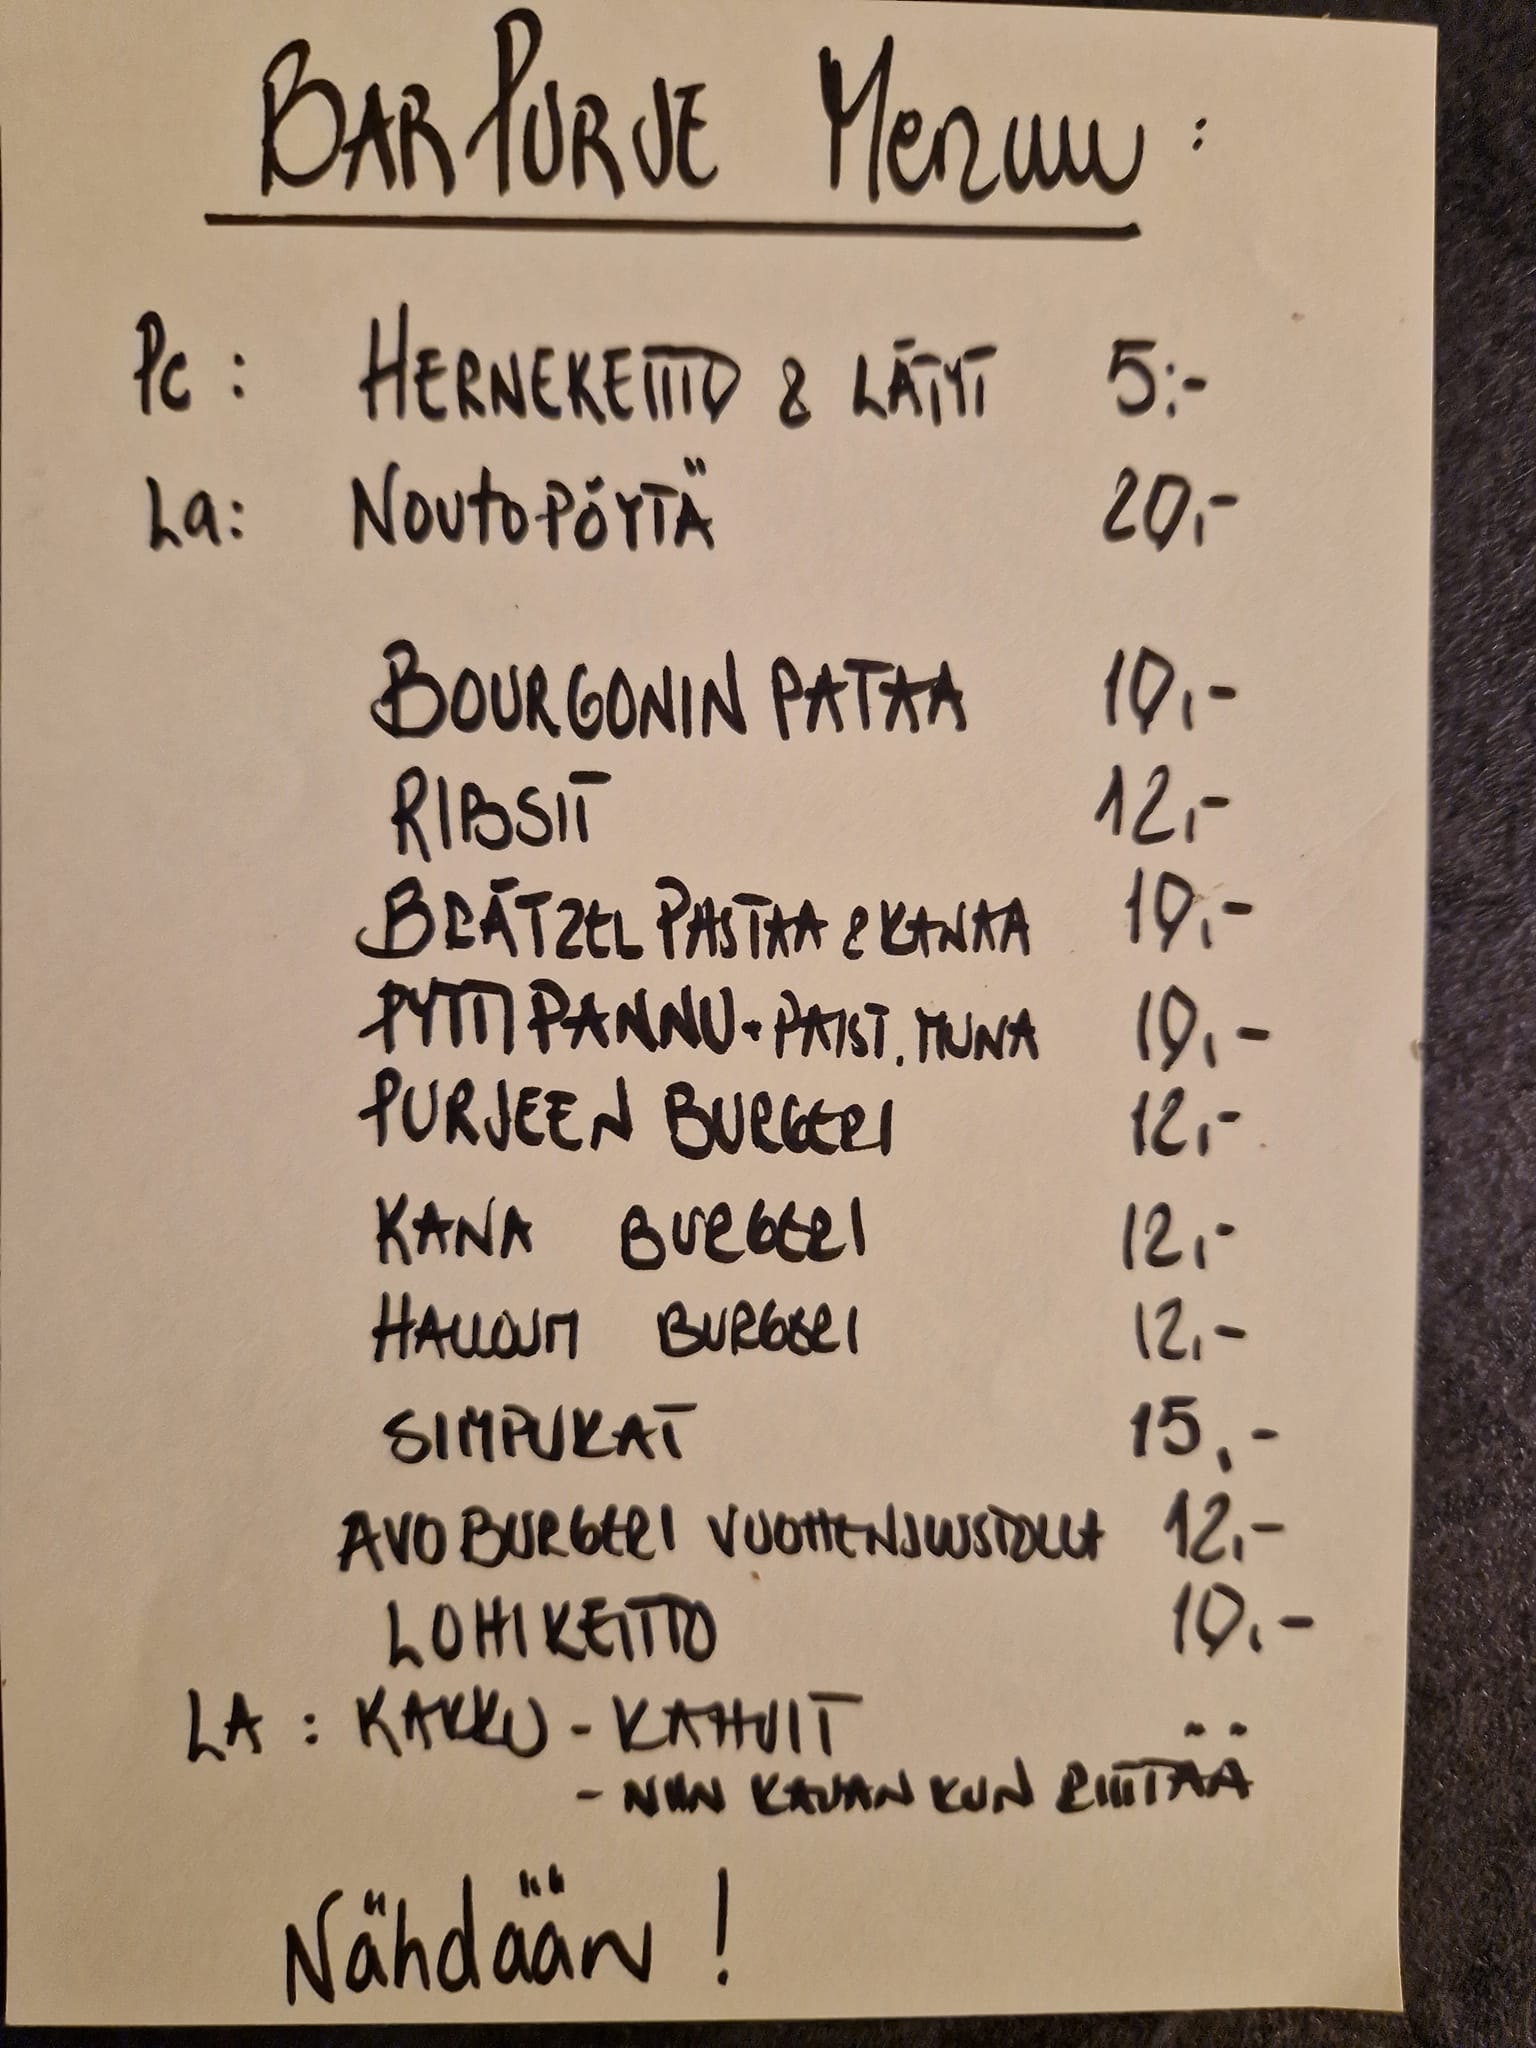 BAR PURJE Menuu :
Pe : HERNEKEITTO & LÄTYT 5:-
La: NOUTOPÖYTÄ 20,-
BOURGONIN PATAA 10,-
RIBSIT 12,-
BRÄTZEL PASTAA & KANAA 10,-
PYTTIPANNU + PAIST. MUNA 10,-
PURJEEN BURGERI 12,-
KANA BURGERI 12,-
HALLOUM BURGERI 12,-
SIMPUKAT 15,-
AVOBURGERI VUOHENJUUSTOLLA 12,-
LOHIKEITTO 10,-
LA : KAKKU - KAHVIT
- NIIN KAUAN KUN RIITTÄÄ
Nähdään !